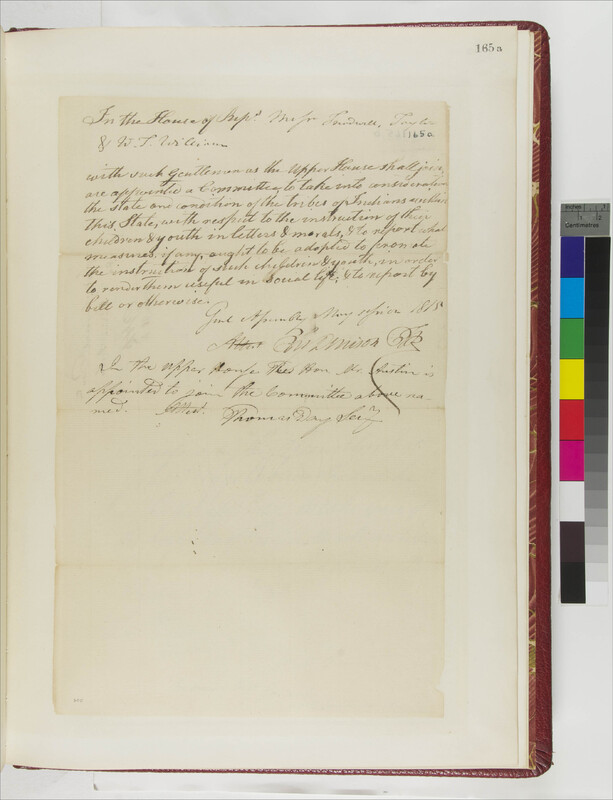 165a
In the House of Reps. Messrs. Trowbridge, Taylor
165a
& W. T. Williams
with such Gentlemen as the Upper House shall join,
are appointed a Committee, to take into consideration
the state and condition of the tribes of Indians within
this State, with respect to the instruction of their
children & youth in letters & morals, & to report what
measures, if any, ought to be adopted to promote
the instruction of such children & youth, in order
to render them useful in social life; & to report by
bill or otherwise.
Genl Assembly May 1815
Attest
In the Upper House The Hon. Mr. Austin is
appointed to join the Committee above na-
med. Attest. Thomas Day Secy